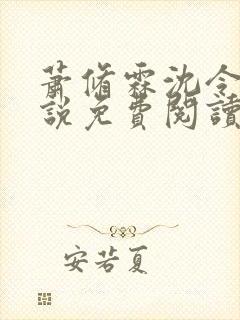 蕭脩霖沈令
說免費閱讀
安若夏